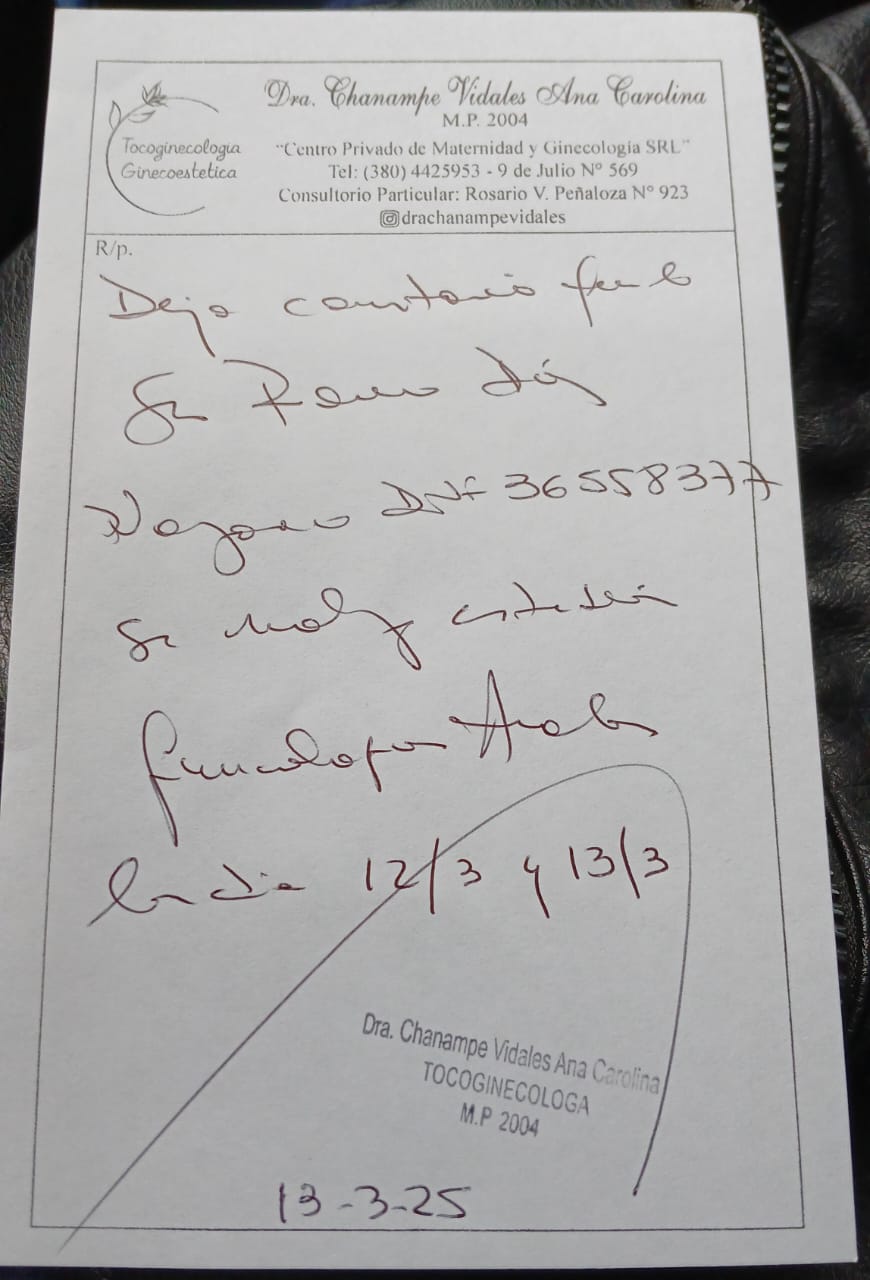 Dra. Chanampe Vidales Ana Carolina
M.P. 2004
Tocoginecología
Ginecoestetica
"Centro Privado de Maternidad y Ginecología SRL"
Tel: (380) 4425953 - 9 de Julio Nº 569
Consultorio Particular: Rosario V. Peñaloza Nº 923
drachanampevidales
R/p.
Dejo constancia que la
Sra Romero
DNI 36558377
se realizó
ginecológicos
los día 12/3 y 13/3
Dra. Chanampe Vidales Ana Carolina
TOCOGINECOLOGA
M.P 2004
13-3-25